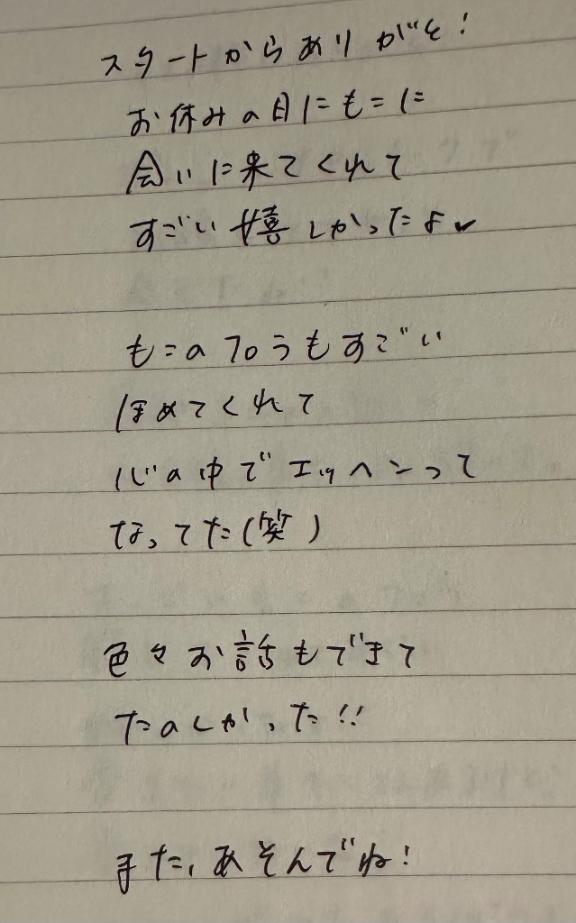 スタートからありがと!
お休みの日にもこに
会いに来てくれて
すごい嬉しかったよ✓
もこのフロうもすごい
ほめてくれて
心の中でエッヘンって
なってた(笑)
色々お話もできて
たのしかった!!
また、あそんでね!